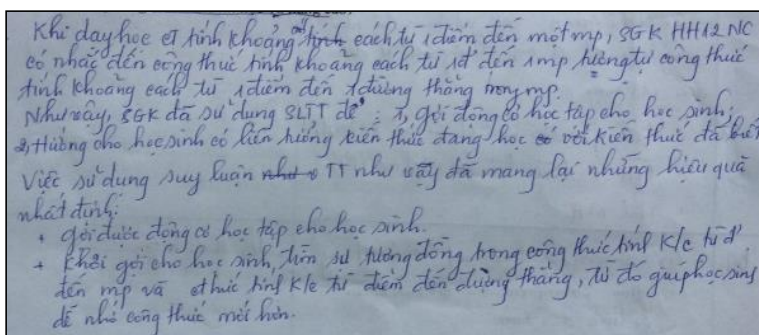 Khi dạy học ct tính khoảng cách từ 1 điểm đến một mp, SGK HH12 NC
có nhắc đến công thức tính khoảng cách từ 1đ đến 1mp tương tự công thức
tính khoảng cách từ 1 điểm đến 1 đường thẳng trong mp.
Như vậy, SGK đã sử dụng SLTT để: 1, gợi động cơ học tập cho học sinh;
2, Hướng cho học sinh có liên tưởng kiến thức đang học với kiến thức đã biết
Việc sử dụng suy luận TT như vậy đã mang lại những hiệu quả
nhất định:
+ gợi được động cơ học tập cho học sinh.
+ Khơi gợi cho học sinh, tìm sự tương đồng trong công thức tính k/c từ đ
đến mp và cthức tính k/c từ điểm đến đường thẳng, từ đó giúp học sinh
dễ nhớ công thức mới hơn.